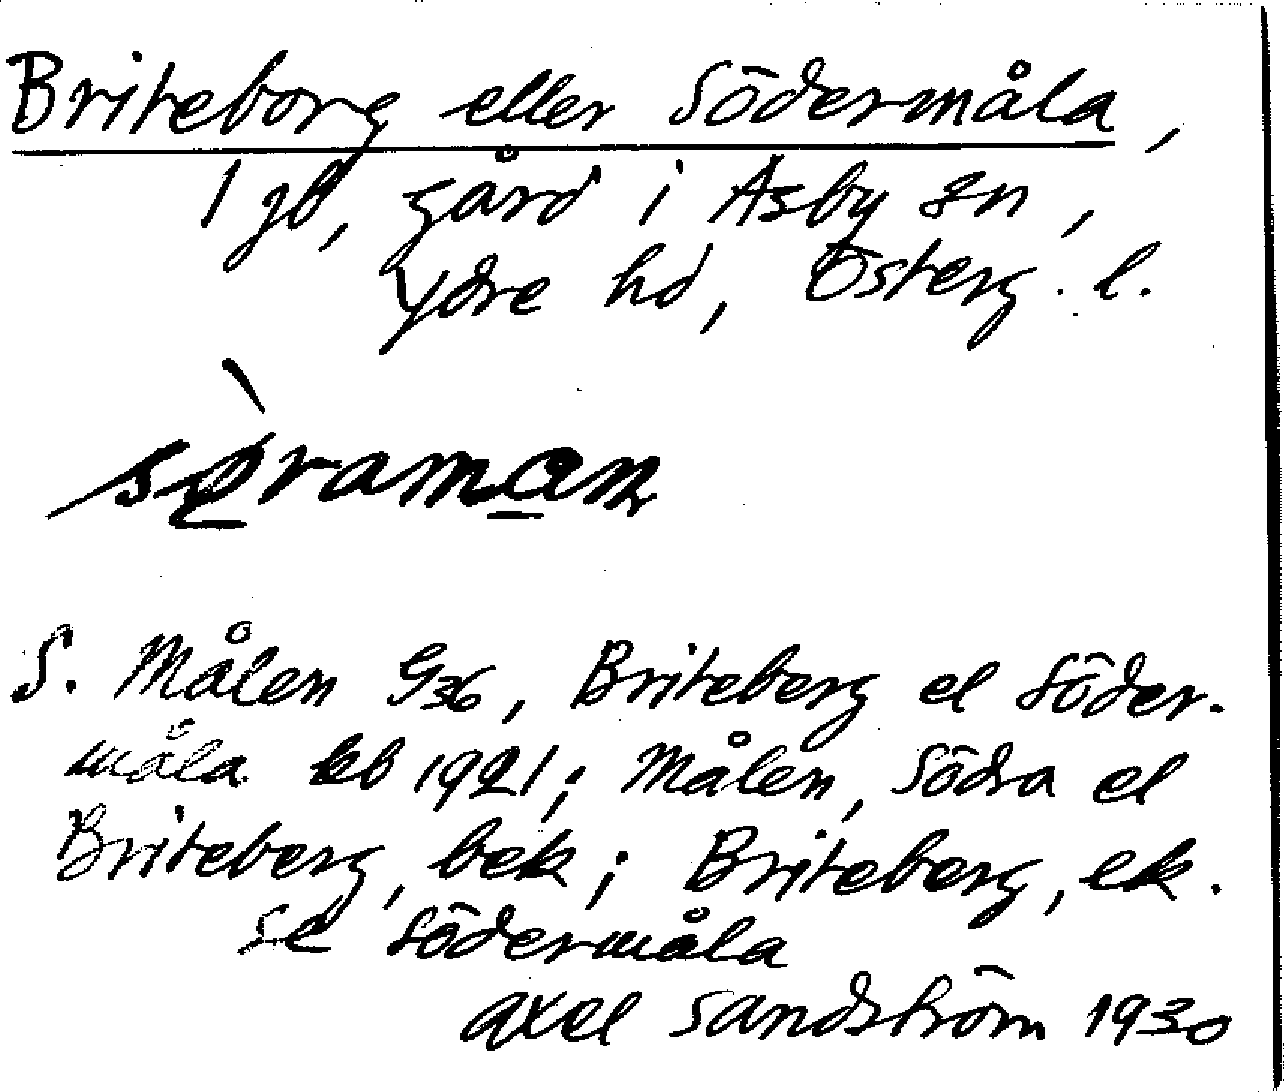 Briteborg eller Södermåla,
1 gb, gård i Asby sn,
Ydre hd, Österg. l.
sø̀raman
S. Målen G36, Briteberg el Söder-
måla kb 1921; Målen, Södra el
Briteberg, bek; Briteberg, ek.
se Södermåla
Axel Sandström 1930